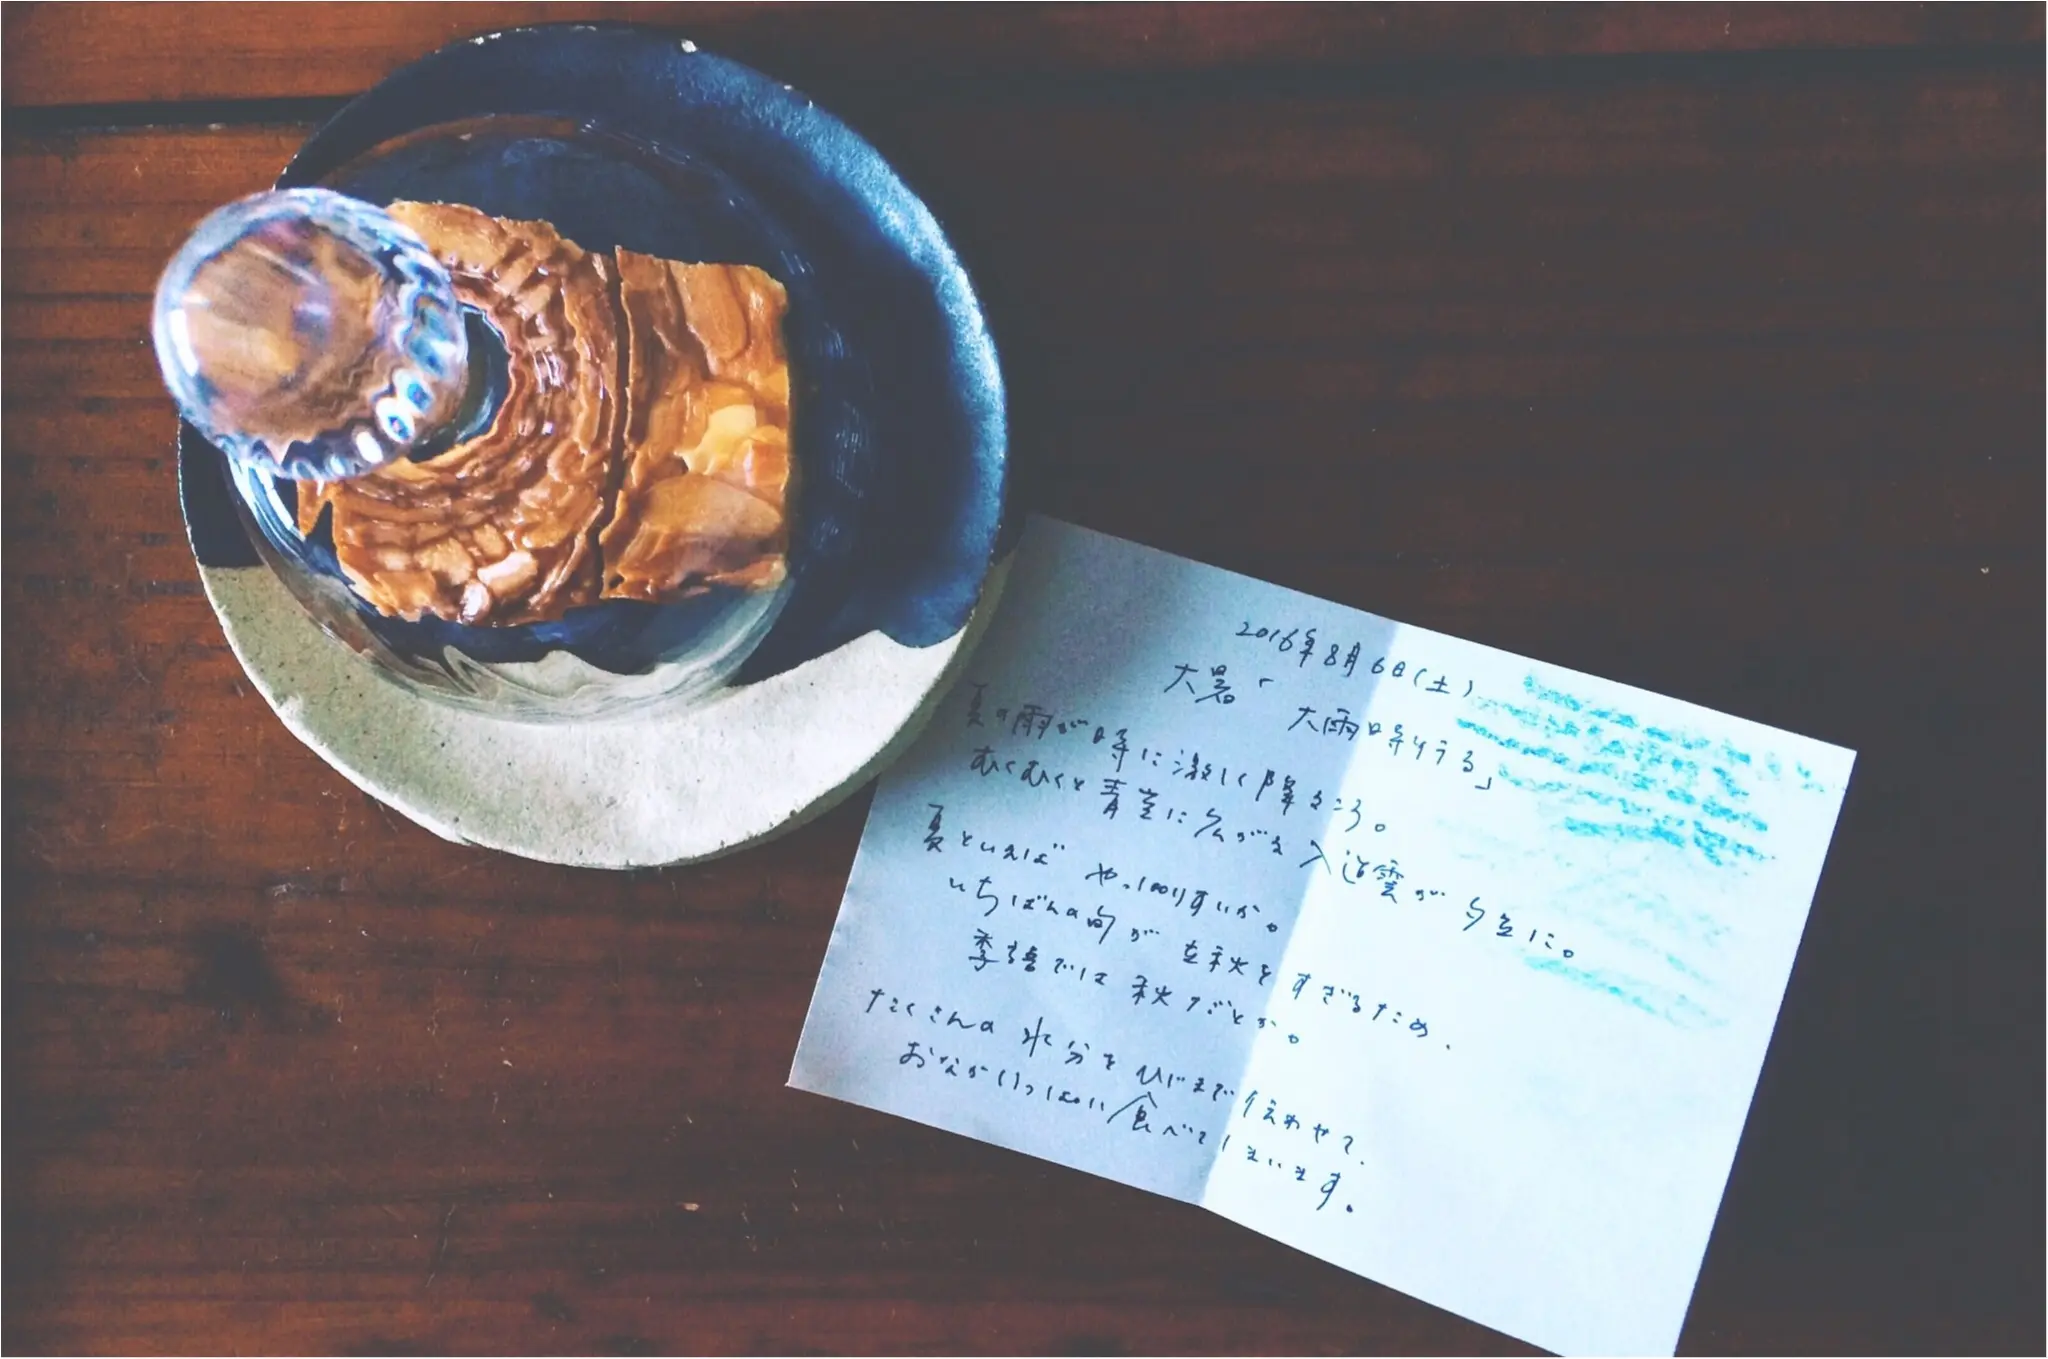 2016年8月6日(土)
大暑「大雨時行る」
夏の雨が時に激しく降るころ。
むくむくと青空に広がる入道雲が夕立に。
夏といえばやっぱりすいか。
いちばんの旬が立秋をすぎるため、
季語では秋だとか。
たくさんの水分をひじまで伝わせて、
おなかいっぱい食べてしまいます。